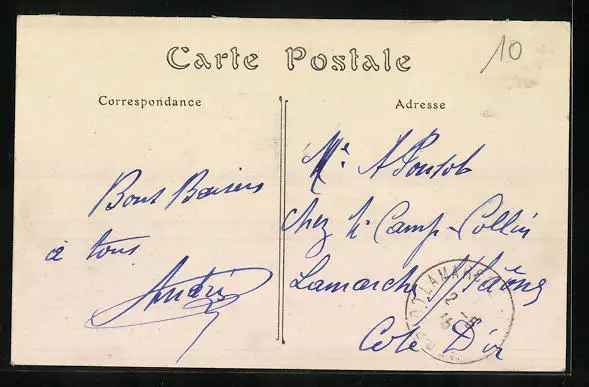 10
Carte Postale
Correspondance
Adresse
Bons Baisers
à tous
André
Me A Ponsot
chez Mr Camp-Collin
Lamarche s/Saône
Cote D'or
LAMARCHE